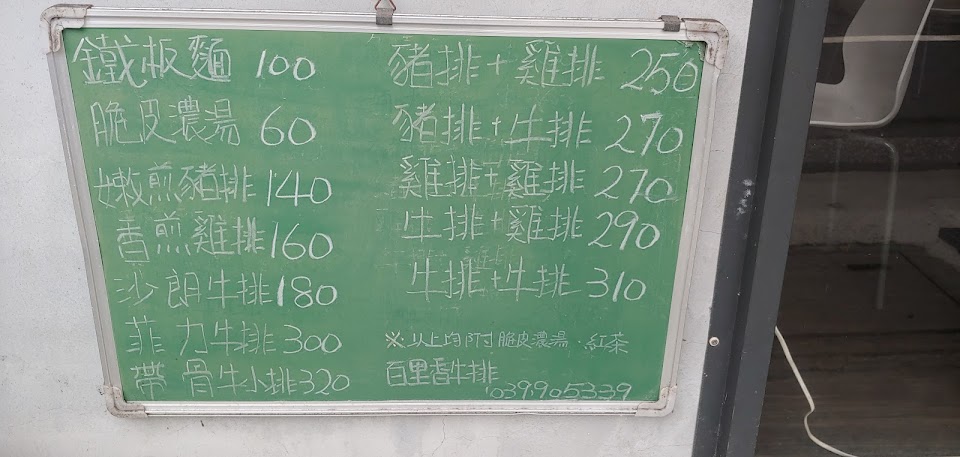 鐵板麵 100
脆皮濃湯 60
嫩煎豬排 140
香煎雞排 160
沙朗牛排 180
菲力牛排 300
帶骨牛小排 320
豬排+雞排 250
豬排+牛排 270
雞排+雞排 270
牛排+雞排 290
牛排+牛排 310
※以上均附脆皮濃湯.紅茶
百里香牛排
039905339